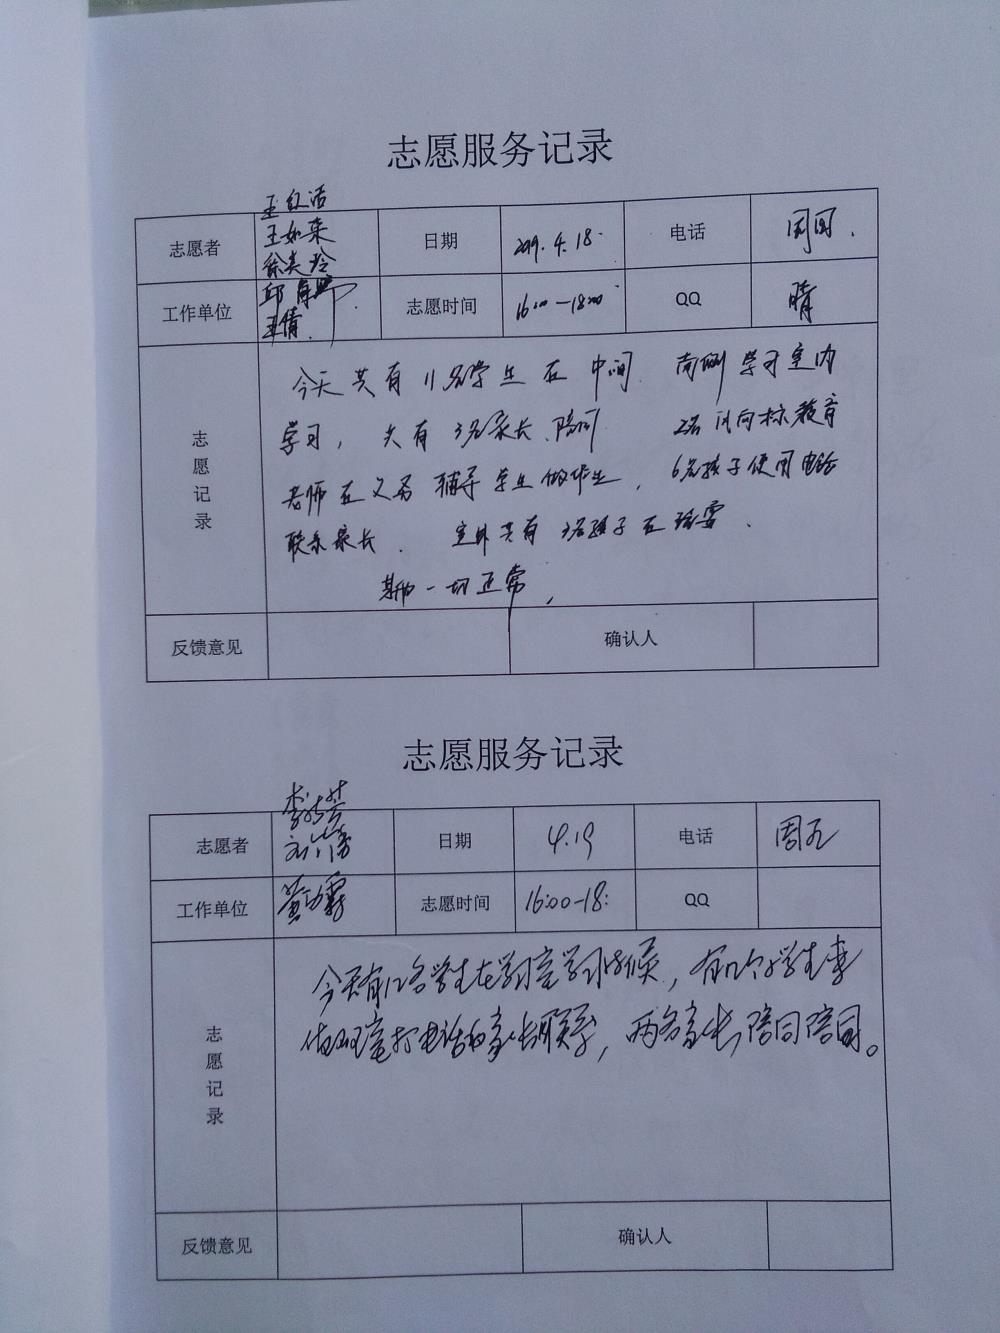 志愿服务记录
志愿者
王如来
王倩
日期
2019.4.18
电话
周四
工作单位
志愿时间
16:00-18:00
QQ
晴
志愿记录
今天共有11名学生在中间 南侧学习室内
学习，共有3名家长陪同 2名风向标教育
老师在义务辅导学生做作业，6名孩子使用电话
联系家长． 室外共有3名孩子在玩耍．
其他一切正常，
反馈意见
确认人
志愿服务记录
志愿者
日期
4.19
电话
周五
工作单位
志愿时间
16:00-18:
QQ
志愿记录
今天有12名学生在学习室学习，有几个学生来
打电话和家长联系，两名家长陪同陪同。
反馈意见
确认人